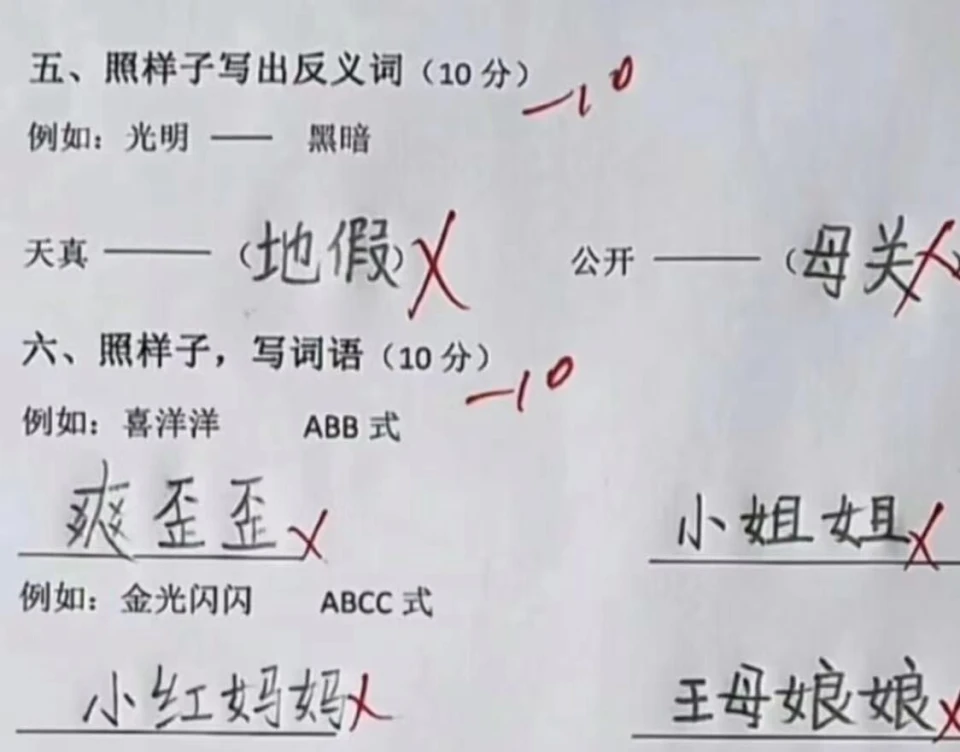 五、照样子写出反义词（10 分） -10
例如：光明 —— 黑暗
天真 ——（地假） 公开 ——（母关）
六、照样子，写词语（10 分） -10
例如：喜洋洋 ABB 式
爽歪歪 小姐姐
例如：金光闪闪 ABCC 式
小红妈妈 王母娘娘